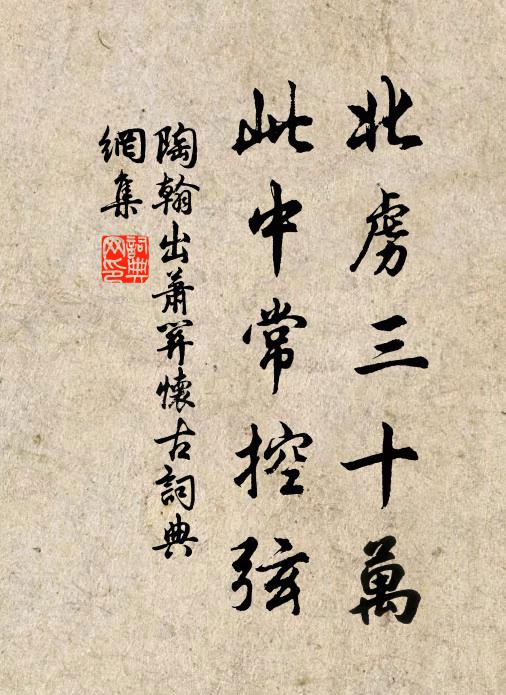 北虜三十萬
此中常控弦
陶翰出蕭關懷古詞典
網集
詞典網印